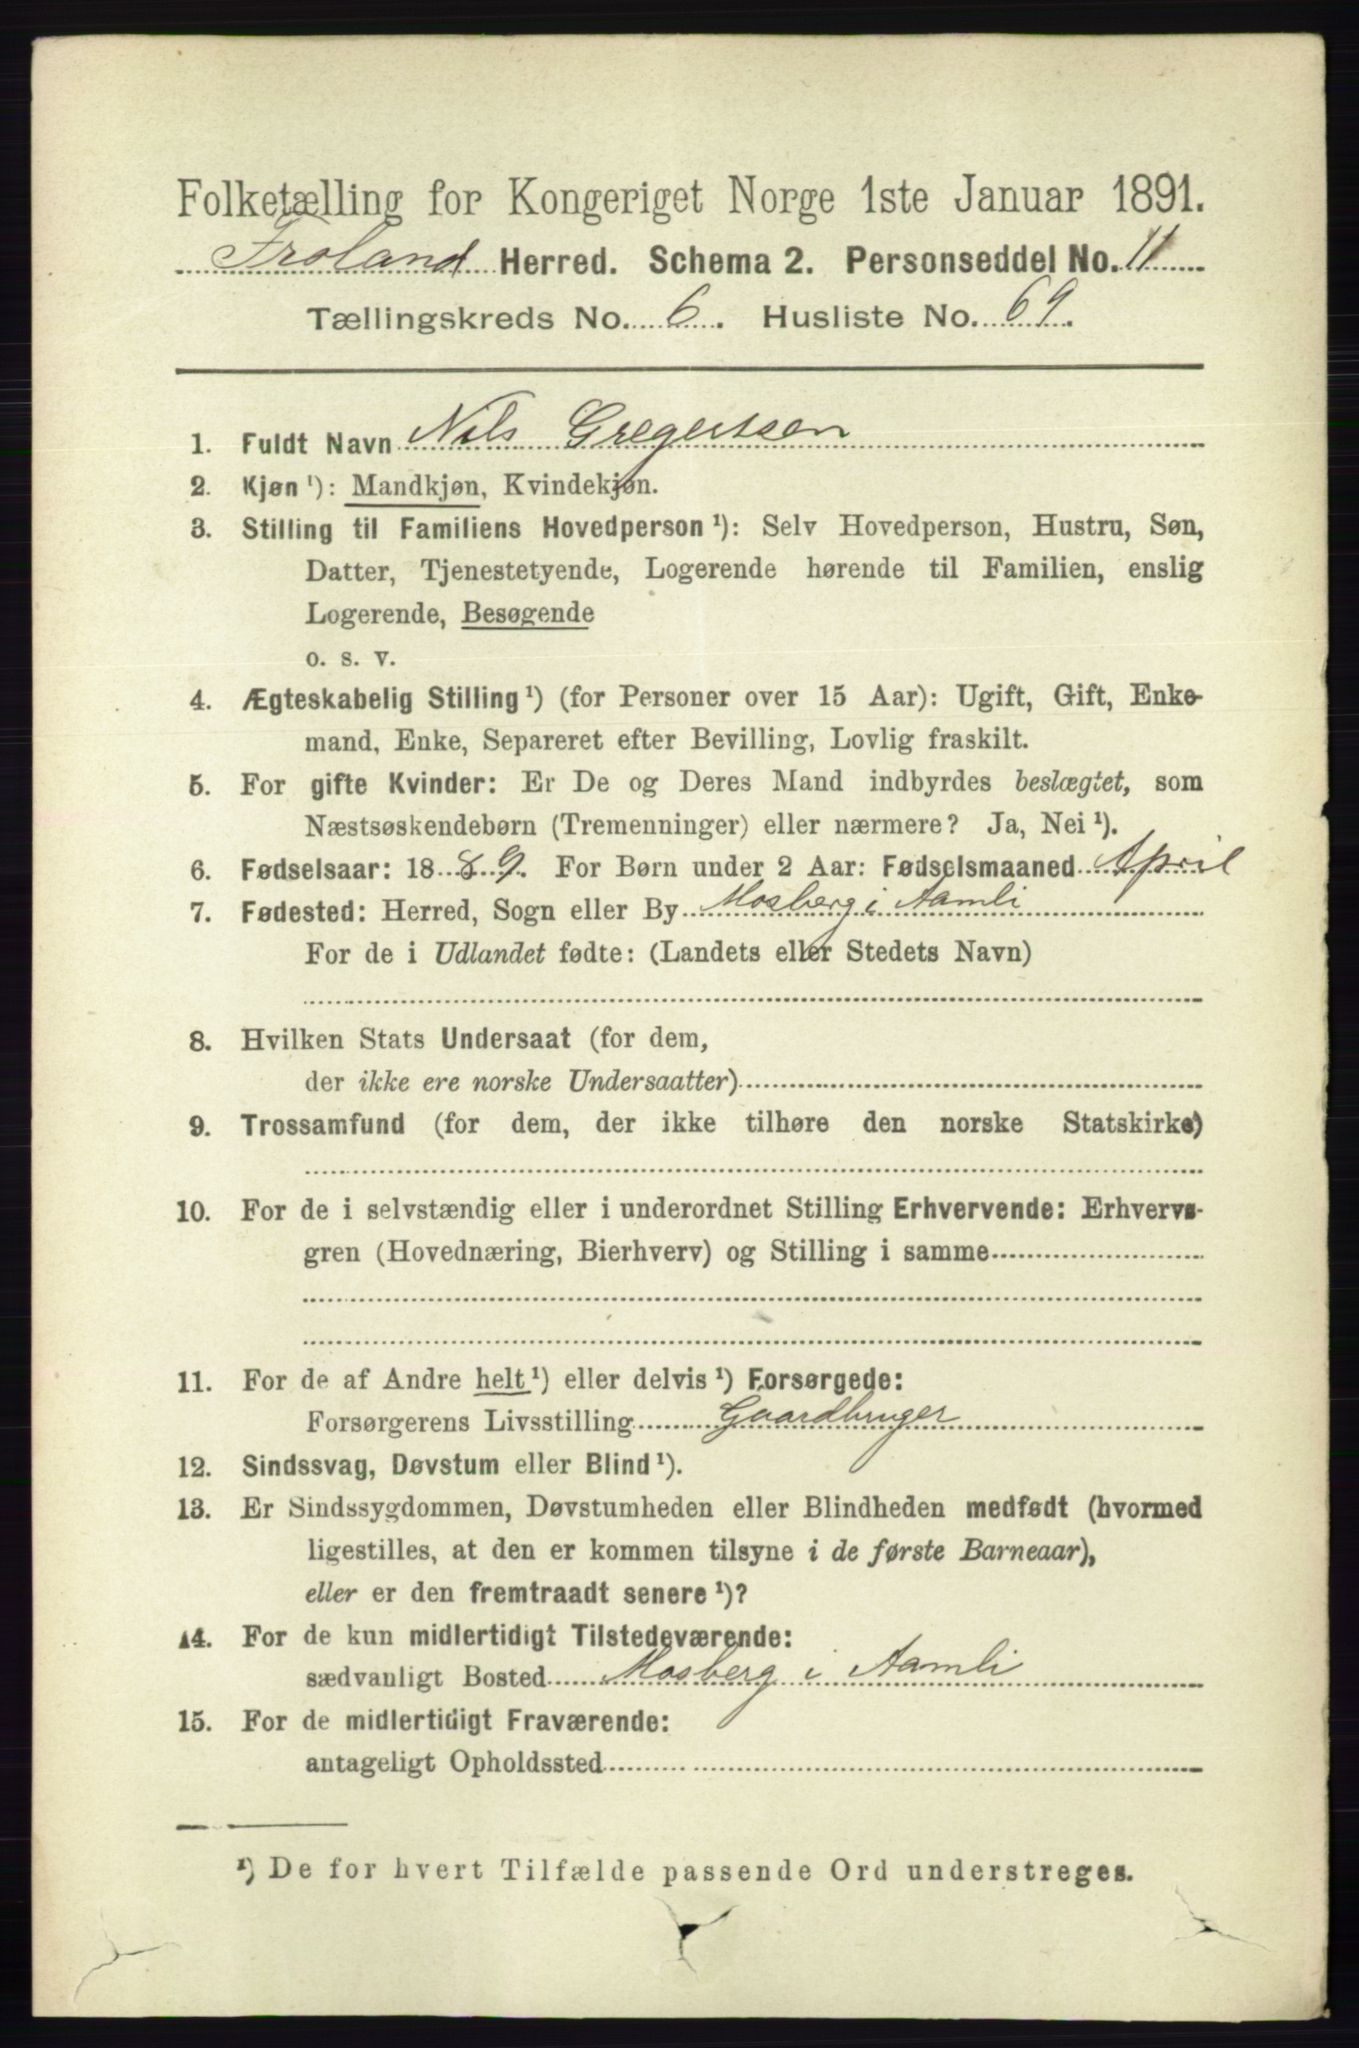 Folketælling for Kongeriget Norge 1ste Januar 1891.
Froland Herred. Schema 2. Personseddel No. 11
Tællingskreds No. 6. Husliste No. 69.
1. Fuldt Navn Nils Gregertsen
2. Kjøn ¹): Mandkjøn, Kvindekjøn.
3. Stilling til Familiens Hovedperson ¹): Selv Hovedperson, Hustru, Søn,
Datter, Tjenestetyende, Logerende hørende til Familien, enslig
Logerende, Besøgende
o. s. v.
4. Ægteskabelig Stilling ¹) (for Personer over 15 Aar): Ugift, Gift, Enke-
mand, Enke, Separeret efter Bevilling, Lovlig fraskilt.
5. For gifte Kvinder: Er De og Deres Mand indbyrdes beslægtet, som
Næstsøskendebørn (Tremenninger) eller nærmere? Ja, Nei ¹).
6. Fødselsaar: 1889. For Børn under 2 Aar: Fødselsmaaned April
7. Fødested: Herred, Sogn eller By Mosberg i Aamli
For de i Udlandet fødte: (Landets eller Stedets Navn)
8. Hvilken Stats Undersaat (for dem,
der ikke ere norske Undersaatter)
9. Trossamfund (for dem, der ikke tilhøre den norske Statskirke)
10. For de i selvstændig eller i underordnet Stilling Erhvervende: Erhvervs-
gren (Hovednæring, Bierhverv) og Stilling i samme
11. For de af Andre helt ¹) eller delvis ¹) Forsørgede:
Forsørgerens Livsstilling Gaardbruger
12. Sindssvag, Døvstum eller Blind ¹).
13. Er Sindssygdommen, Døvstumheden eller Blindheden medfødt (hvormed
ligestilles, at den er kommen tilsyne i de første Barneaar),
eller er den fremtraadt senere ¹)?
14. For de kun midlertidigt Tilstedeværende:
sædvanligt Bosted Mosberg i Aamli
15. For de midlertidigt Fraværende:
antageligt Opholdssted
¹) De for hvert Tilfælde passende Ord understreges.